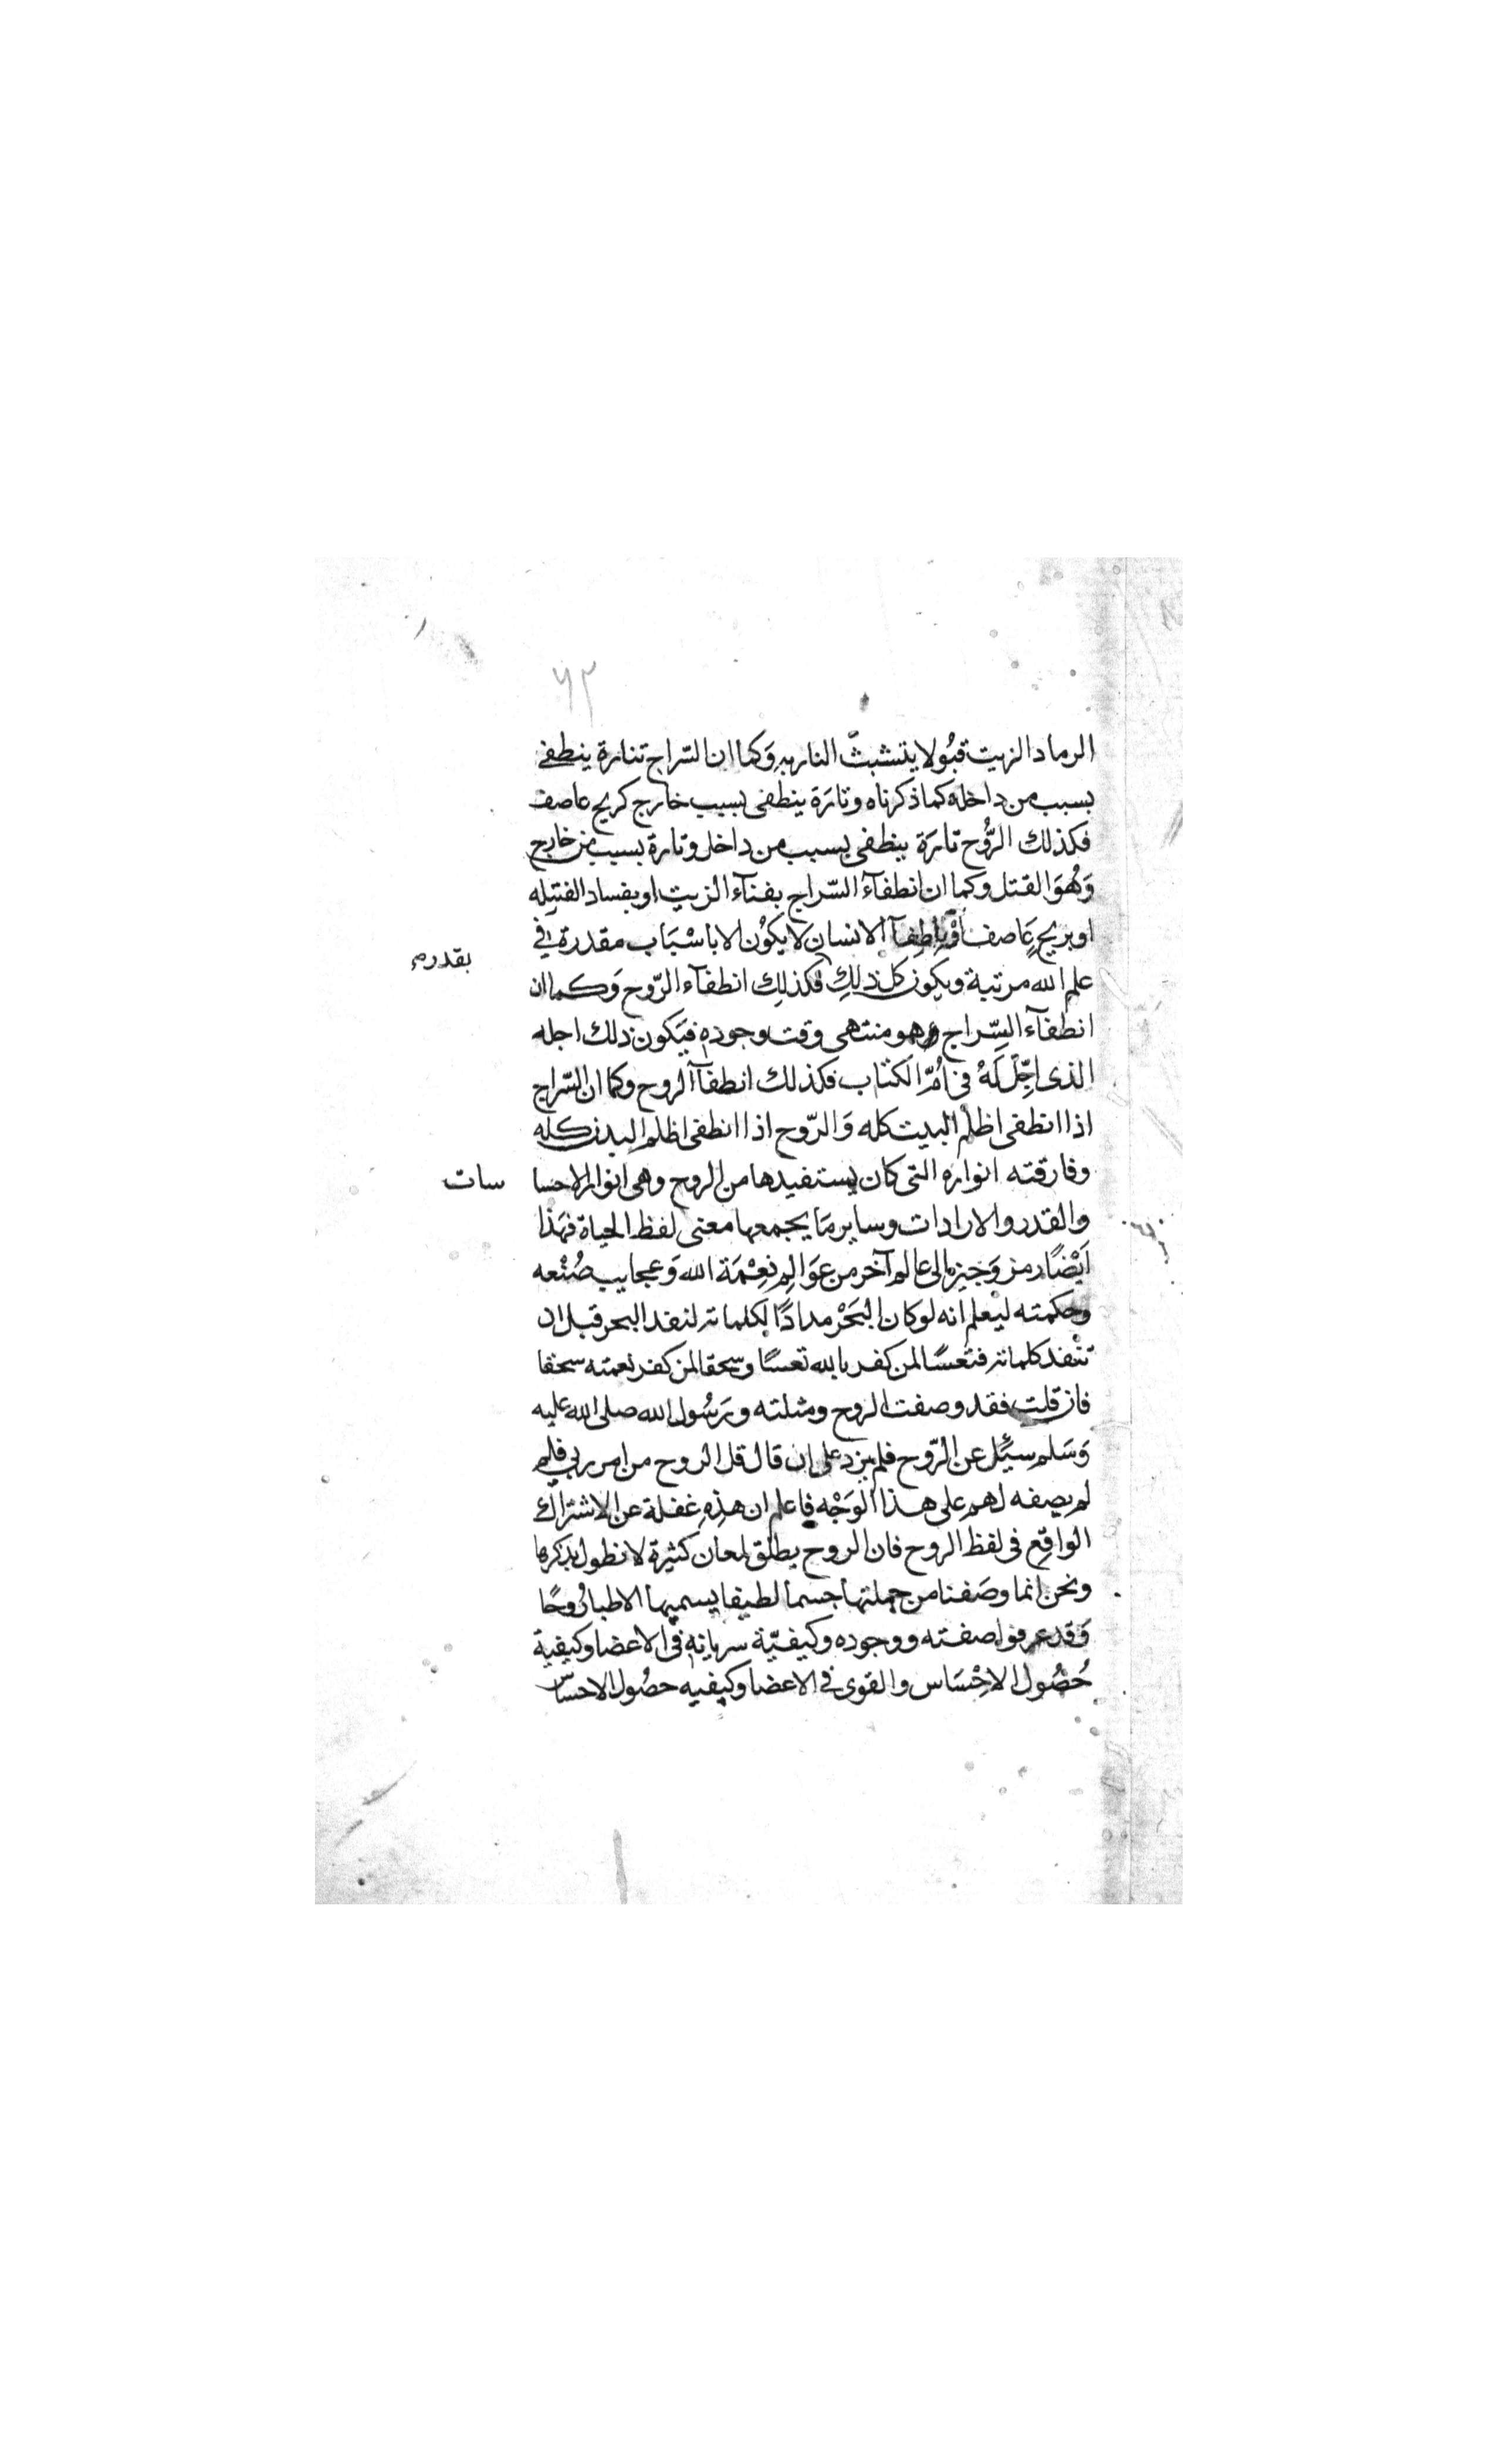 ٦٢
الرماد الزيت قبُولا يتشبثّ النار بهِ وَكما ان السّراج تنارة ينطفى
بسبب من داخله كما ذكرناه وتارَة ينطفى بسبب خارج كريح عاصف
فكذلك الرُّوح تارَة ينطفى بسبب من داخل وتارة بسبب من خارج
وَهُوَ القتل وكما ان انطفآء السّراج بفنآء الزيت او بفساد الفتيله
او بريحٍ عَاصف أوْ باطفآ الانسان لا يكوُن الا باسْبَاب مقدرة في
بقدرم
علم الله مرتبة ويكون كل ذلكِ فكذلِك انطفآء الرّوح وَكما ان
انطفآء السّراج هو منتهى وقت وجودهِ فيَكون ذلك اجله
الذى اجّلَ لَهُ فى اُمّ الكتاب فكذلك انطفآ الروح وكما ان السّراج
اذا انطفى اظلم البيت كله وَالرّوح اذا انطفى اظلم البدن كله
وفارقته انواره التى كان يستفيدها من الروح وهى انوار الاحسا
سات
والقدر والارادات وساير مَا يجمعها معنى لفظ الحياة فهَذا
اَيْضًا رمز وَجيزه الى عالم آخر من عوَالِم نِعْمَة الله وَعجايب صُنْعه
وحكمته ليعلم انه لو كان البَحْر مدادًا لكلماته لنفد البحر قبل ان
تنفد كلماته فتعسًا لمن كفر بالله تعسًا وسحقا لمن كفر نعمته سحقا
فان قلت فقد وصفت الروح ومثلته ورَسُول الله صلى الله عليه
وَسَلم سيُئل عن الرّوح فلم يزد على ان قال قل الروح من امر ربى فلم
لم يصفه لهم على هذا الوَجْه فاعلم ان هذِهِ غفلة عن الاشتراك
الواقع فى لفظ الروح فان الروح يطلق لمعان كثيرة لا نطول بذكرها
ونحن انما وصَفنا من جملتها جسما لطيفا يسميها الاطبا رُوحًا
وَقد عرفوا صفته ووجوده وكيفيّة سريانهِ فى الاعضا وكيفية
حُصُول الاحْسَاس والقوى فى الاعضا وكيفيه حصُول الاحساس